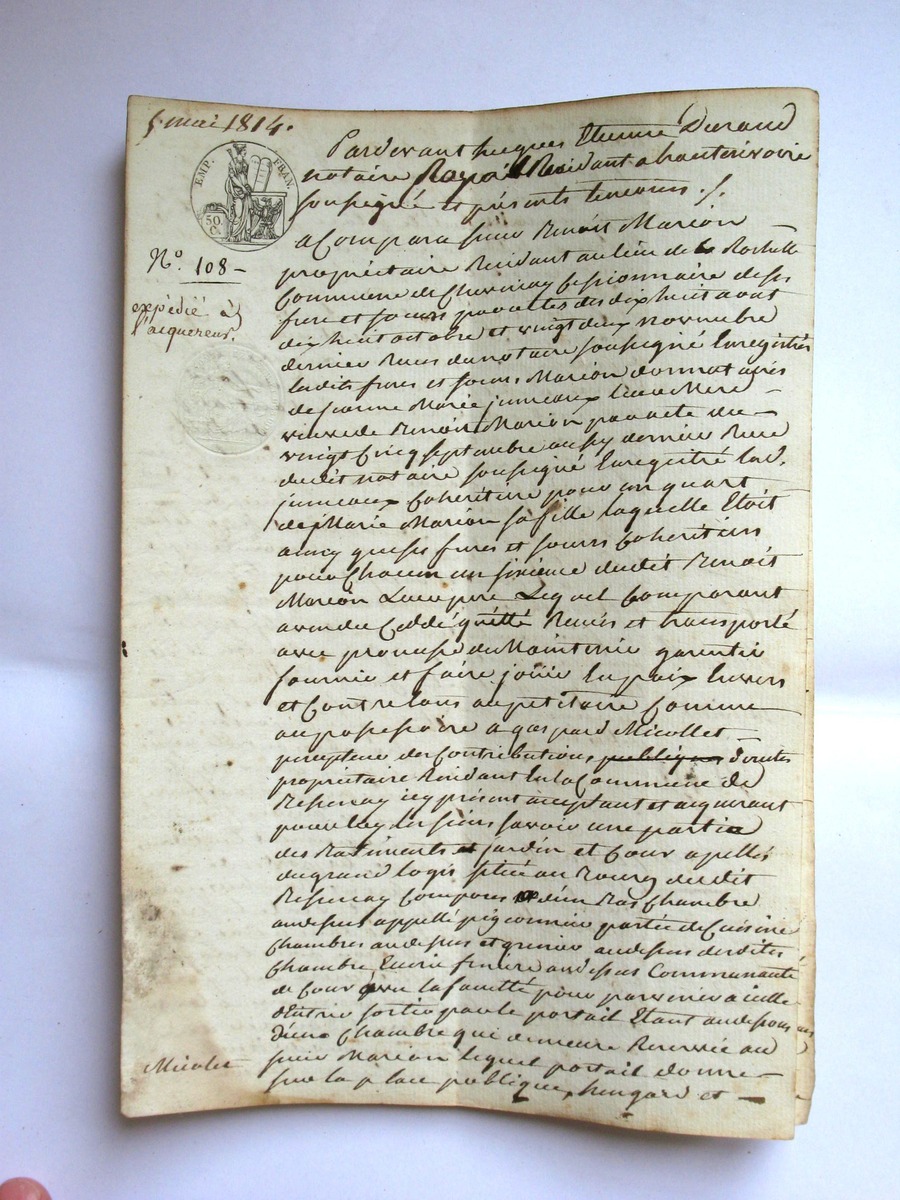 5 mai 1814.
EMP. FRAN.
50. C.
N.º 108 –
expédié à
l'acquereur.
Pardevant jacques Etienne Durand
notaire Royal Residant a hauterivoire
soussigné et présents temoins ./.
a Comparu sieur Benoit Marion
propriétaire Residant au lieu de la Rochette
Commune de Cessionnaire de ses
frere et soeurs par actes des dix huit aout
dix huit octobre et vingt deux novembre
dernier Recus du notaire soussigné Enregistrés
lesdits freres et soeurs Marion donnataires
de jeanne Marie jumeaux Leur Mere
veuve de Benoit Marion par acte du
vingt Cinq septembre aussy dernier Recu
dudit notaire soussigné Enregistré lad.
jumeaux Coheritiere pour un quart
de Marie Marion sa fille laquelle Etoit
ainsy que ses freres et soeurs Coheritiers
pour Chacun un sixieme dudit Benoit
Marion Leur pere Lequel Comparant
a vendu Ceddé quitté Remis et transporté
avec promesse de Maintenir garentir
fournir et faire jouir En paix Envers
et Contre tous au petitoire Comme
au possessoire a gaspard Micollet –
percepteur des Contributions publiques directes
propriétaire Residant En la Commune de
Ressenay icy présent acceptant et acquerant
pour luy Les siens savoir une partie
des Batiments jardin et Cour apellés
du grand logis situé au Bourg dudit
Ressenay Composés d'un Bas Chambre
au dessus appellé pigeonnier partie de Cuisine
Chambres au dessus et grenier au dessus desdites
Chambre Ecurie feniere au dessus Communauté
de Cour avec la faculté pour parvenir a icelle
d'Entrer sortir par le portail Etant au dessous
d'une Chambre qui demeure Reservée au
sieur Marion lequel portail donne –
sur la place publique, hengard et –
Micolet